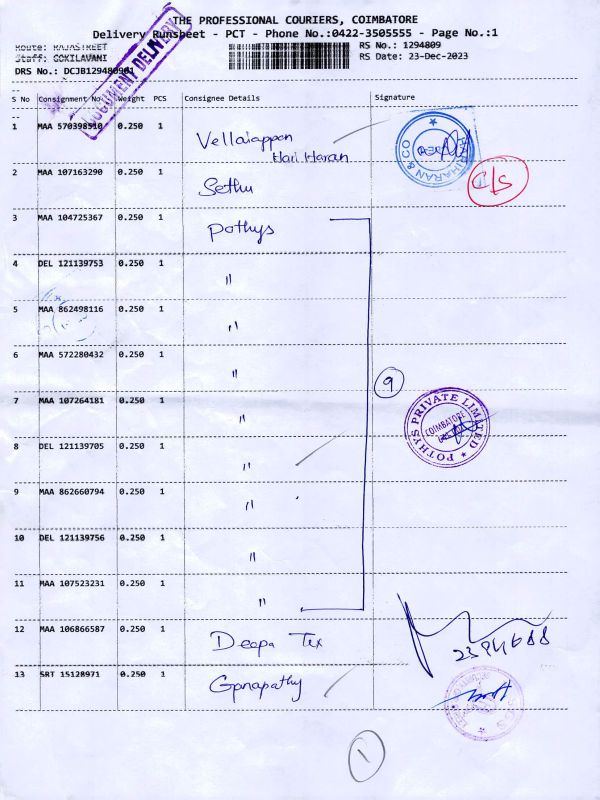 THE PROFESSIONAL COURIERS, COIMBATORE
Delivery Runsheet - PCT - Phone No.:0422-3505555 - Page No.:1
Route: RAJASTREET
RS No.: 1294809
Staff: GOKILAVANI
RS Date: 23-Dec-2023
DRS No.: DCJB129480901
DOCUMENT DELIVERY
S No Consignment No. Weight PCS Consignee Details Signature
1 MAA 570398510 0.250 1 Vellaiappan
Hari Haran
HARIHARAN & CO
2 MAA 107163290 0.250 1 Sethu
C/S
3 MAA 104725367 0.250 1 Pothys
4 DEL 121139753 0.250 1 "
5 MAA 862498116 0.250 1 "
6 MAA 572280432 0.250 1 "
9
7 MAA 107264181 0.250 1 "
POTHYS PRIVATE LIMITED
COIMBATORE
8 DEL 121139705 0.250 1 "
9 MAA 862660794 0.250 1 "
10 DEL 121139756 0.250 1 "
11 MAA 107523231 0.250 1 "
12 MAA 106866587 0.250 1 Deepa Tex
13 SRT 15128971 0.250 1 Ganapathy
1